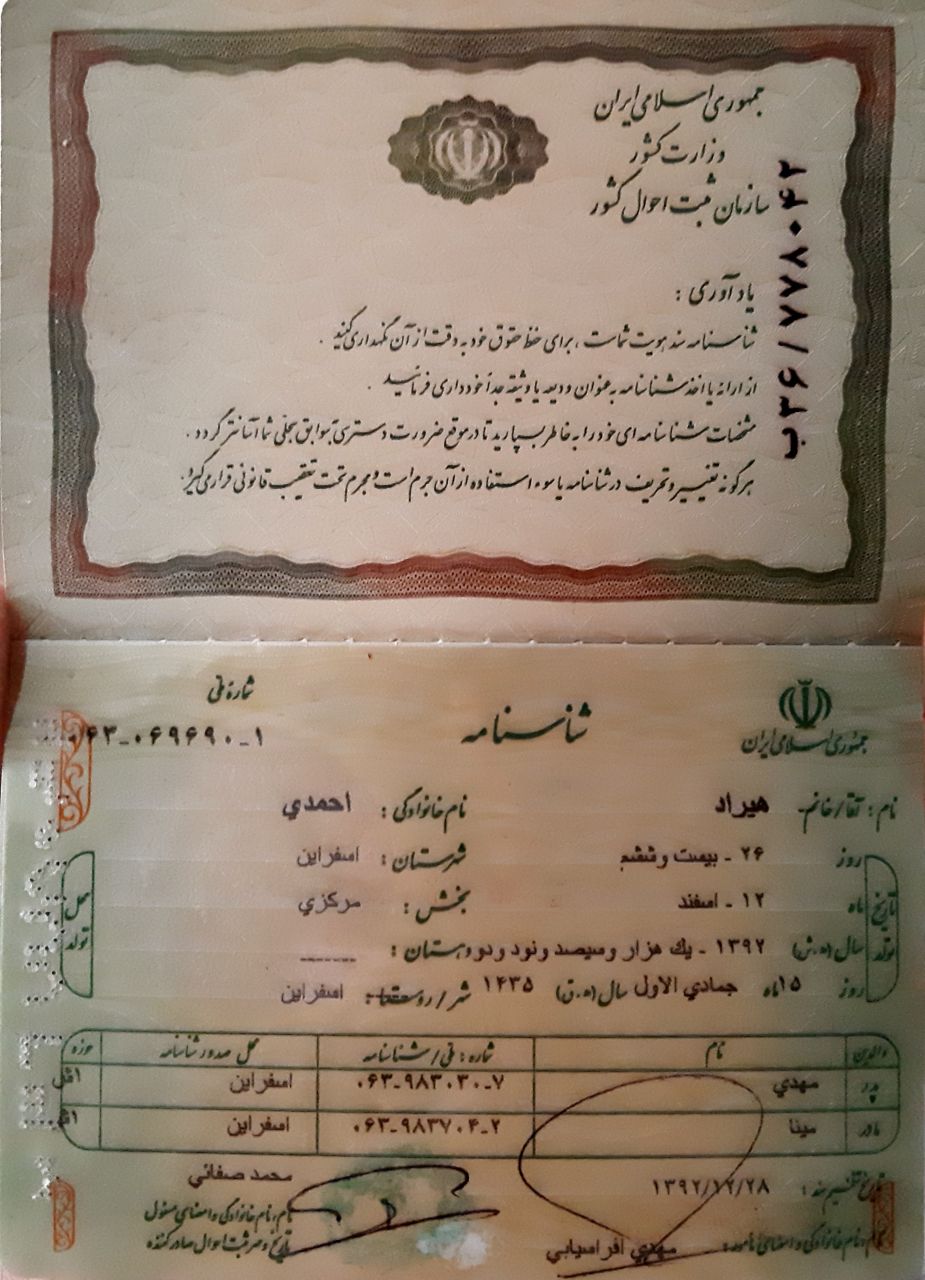 جمهوری اسلامی ایران
وزارت کشور
سازمان ثبت احوال کشور
ب۳۶/۷۷۸۰۴۲
یادآوری :
شناسنامه سند هویت شماست ، برای حفظ حقوق خود به دقت از آن نگهداری کنید .
از ارائه یا اخذ شناسنامه به عنوان ودیعه یا وثیقه جداً خودداری فرمائید .
مشخصات شناسنامه ای خود را به خاطر بسپارید تا در موقع ضرورت دسترسی به سوابق سجلی شما آسانتر گردد .
هرگونه تغییر و تحریف در شناسنامه یا سوء استفاده از آن جرم است و مجرم تحت تعقیب قانونی قرار می گیرد.
جمهوری اسلامی ایران
شناسنامه
شماره ملی
۰۶۳-۰۶۹۶۹۰-۱
نام : آقا/خانم- هيراد نام خانوادگی : احمدي
تاریخ تولد
روز ۲۶ - بيست وششم
ماه ۱۲ - اسفند
سال (ه.ش) ۱۳۹۲ - يك هزار وسيصد ونود ودو
روز ۱۵ ماه جمادي الاول سال (ه.ق) ۱۴۳۵
محل تولد
شهرستان : اسفراين
بخش : مركزي
دهستان : ------
شهر / روستا : اسفراين
والدین نام شماره : ملی/شناسنامه محل صدور شناسنامه حوزه
پدر مهدي ۰۶۳-۹۸۳۰۳۰-۷ اسفراين
مادر مينا ۰۶۳-۹۸۳۷۰۴-۲ اسفراين
تاریخ تنظیم سند : ۱۳۹۲/۱۲/۲۸
نام و نام خانوادگی و امضای مأمور : مهدي افراسيابي
محمد صفائي
نام، نام خانوادگی و امضای مسئول
تاریخ و مهر ثبت احوال صادرکننده